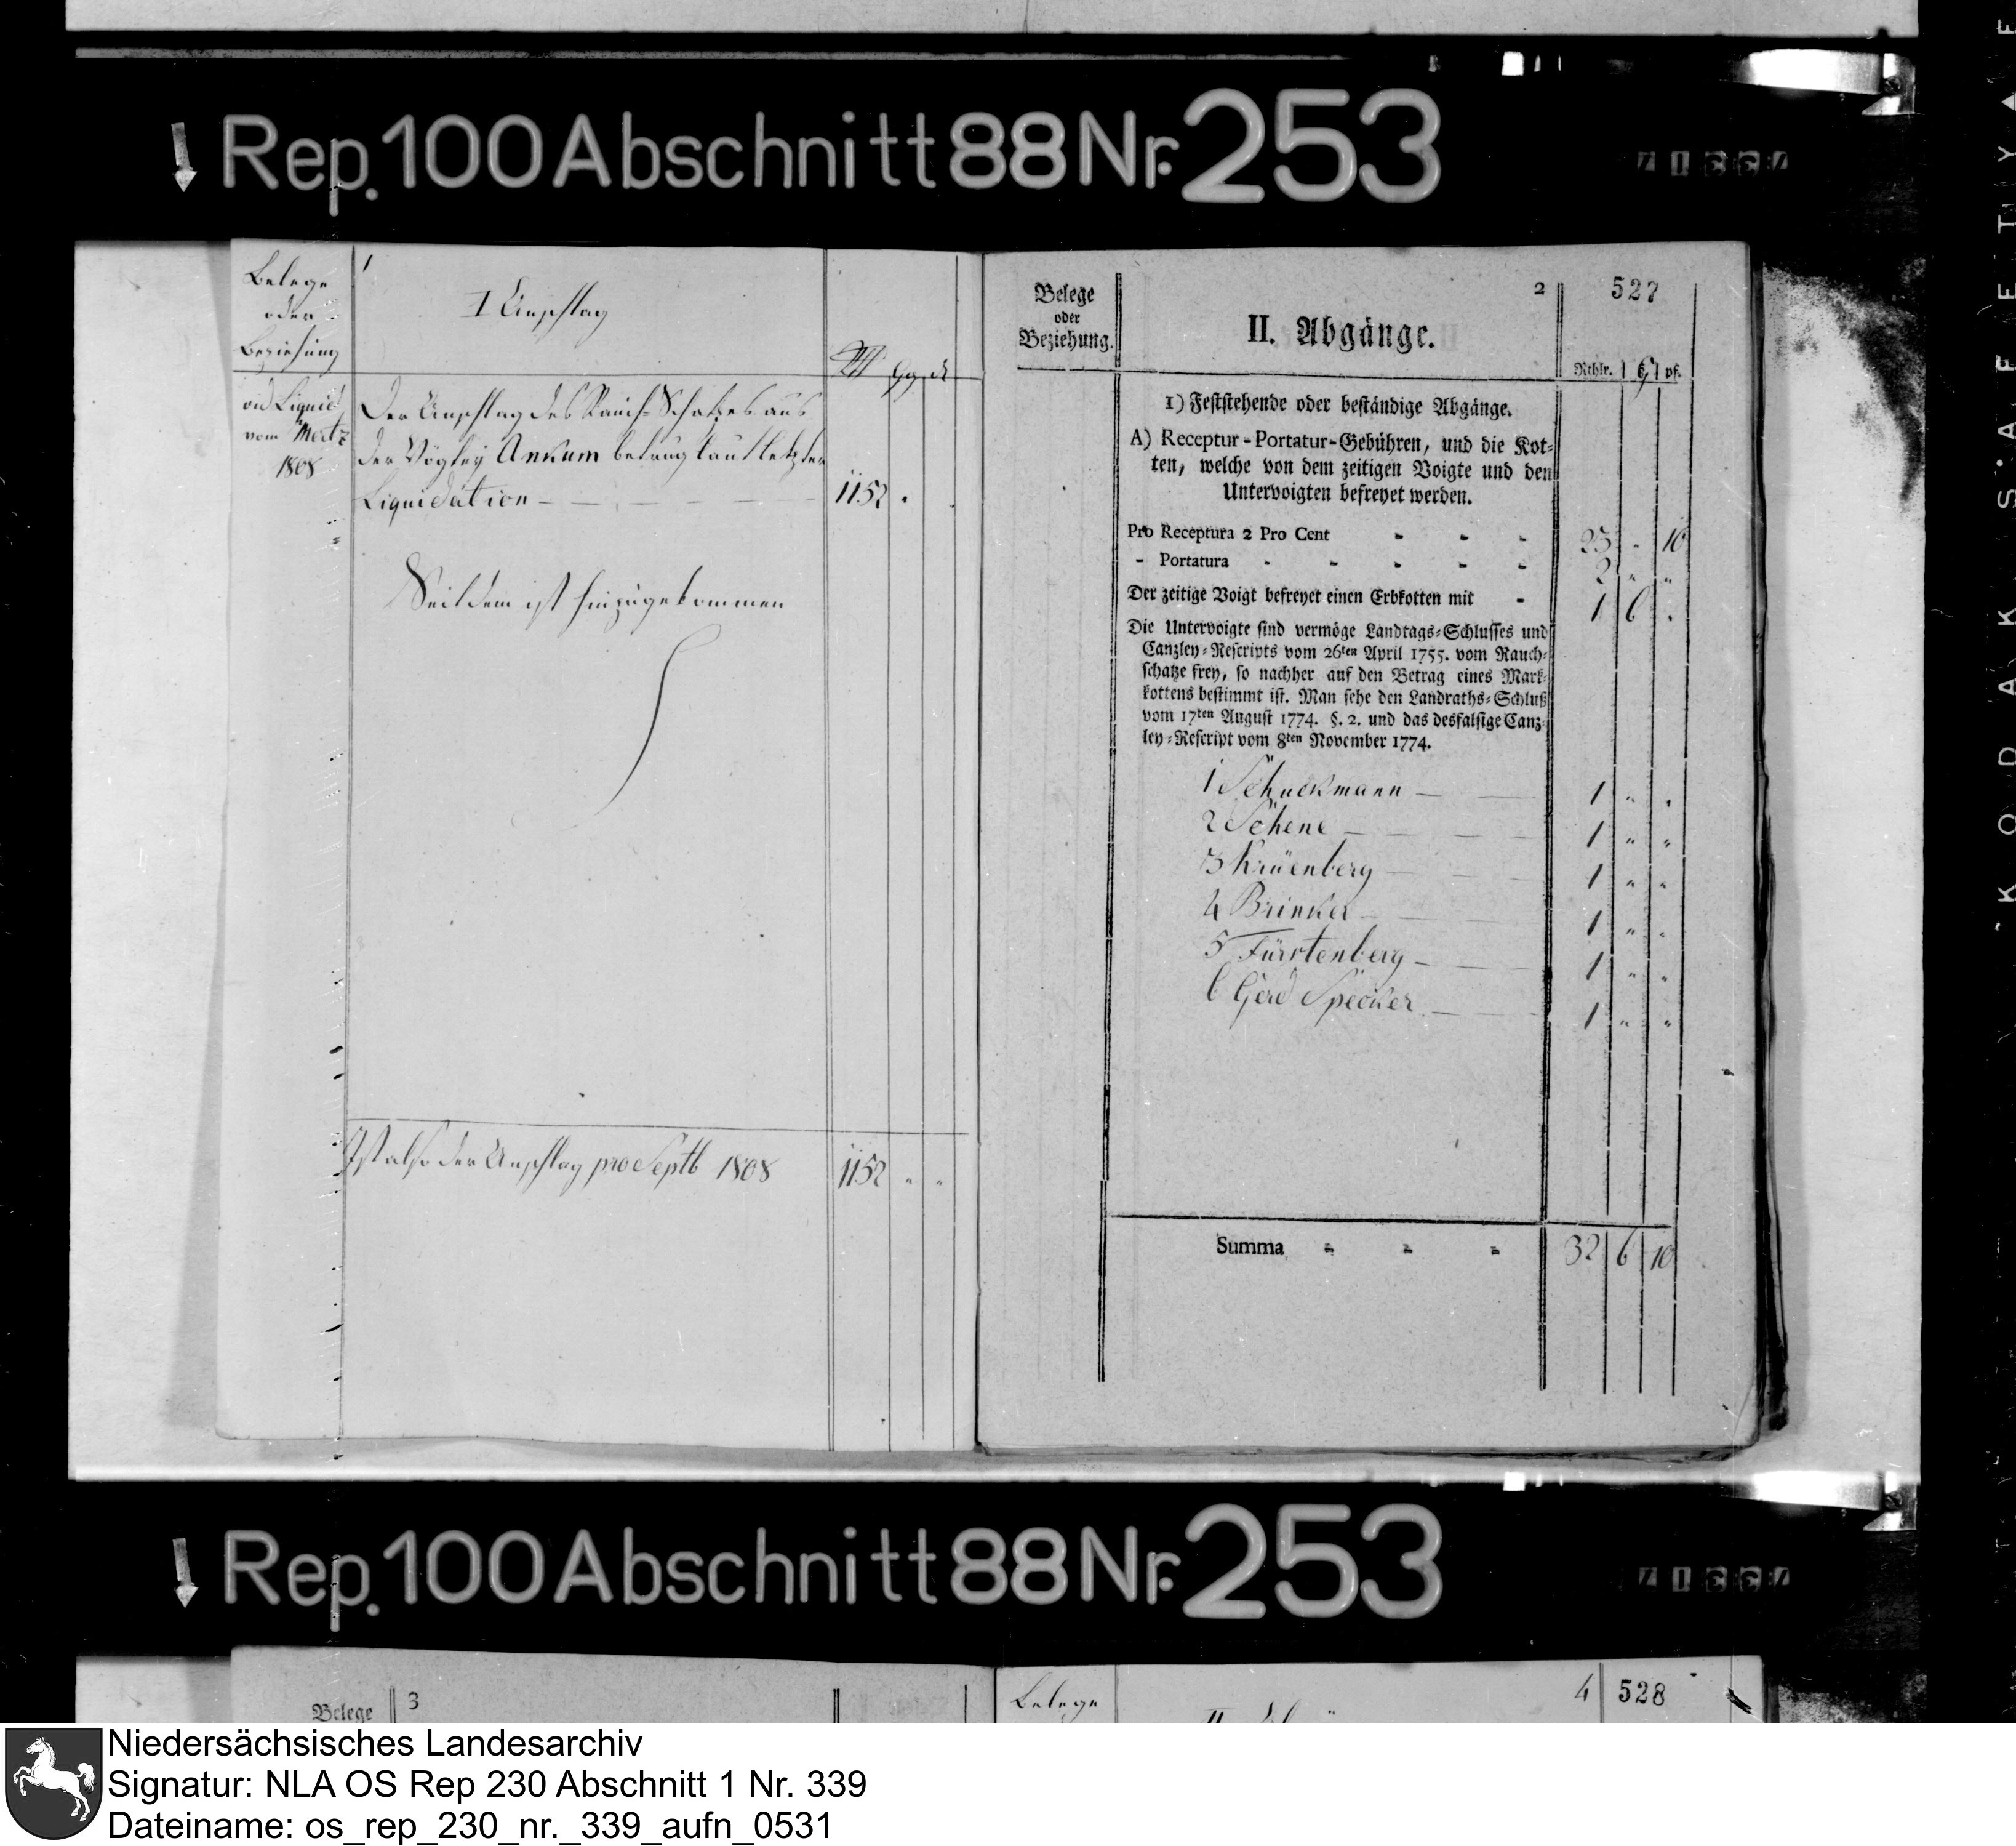 Rep. 100 Abschnitt 88 Nr. 253
Belege
oder
Beziehung
1
I Anschlag
Rt ggr d
vid Liquid
vom Mertz
1808
Der Anschlag des Rauch-Schatzes aus
der Vogtey Ankum betrug laut letzter
Liquidation - - - - 1152 "
Seitdem ist hinzugekommen
Ist also der Anschlag pro Septb 1808 1152 " "
Belege
oder
Beziehung.
2
527
II. Abgänge.
Rthlr. ß pf.
1) Feststehende oder beständige Abgänge.
A) Receptur-Portatur-Gebühren, und die Kot-
ten, welche von dem zeitigen Voigte und den
Untervoigten befreyet werden.
Pro Receptura 2 Pro Cent - - - 23 " 10
- Portatura - - - - - 2 " "
Der zeitige Voigt befreyet einen Erbkotten mit - 1 6 "
Die Untervoigte sind vermöge Landtags-Schlusses und
Canzley-Rescripts vom 26ten April 1755. vom Rauch-
schatze frey, so nachher auf den Betrag eines Mark-
kottens bestimmt ist. Man sehe den Landraths-Schluß
vom 17ten August 1774. §. 2. und das desfalsige Canz-
ley-Rescript vom 8ten November 1774.
1 Schuckmann - - 1 " "
2 Schene - - - - 1 " "
3 Krüenberg - - - 1 " "
4 Brinker - - - 1 " "
5 Fürstenberg - - - 1 " "
6 Gerd Specker - - - 1 " "
Summa - - - 32 6 10
Rep. 100 Abschnitt 88 Nr. 253
Belege
3
Belege
4
528
KODAK SAFETY
Niedersächsisches Landesarchiv
Signatur: NLA OS Rep 230 Abschnitt 1 Nr. 339
Dateiname: os_rep_230_nr._339_aufn_0531